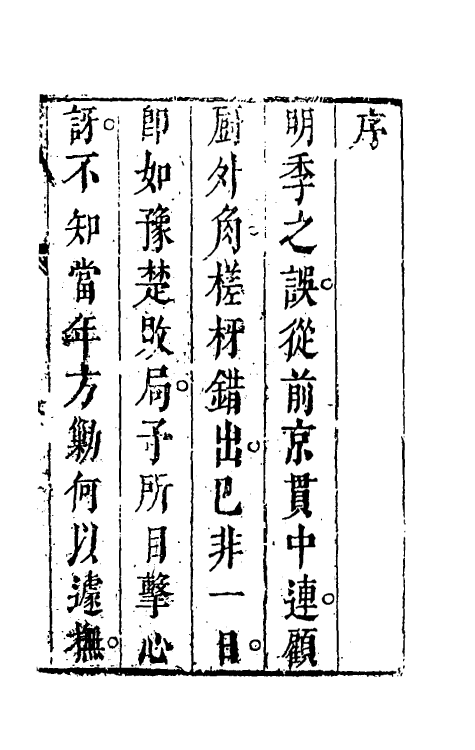 序
明季之誤從前京貫中連顧
厨外角槎枒錯出已非一日
即如豫楚敗局予所目擊心
訝不知當年方勦何以遽撫